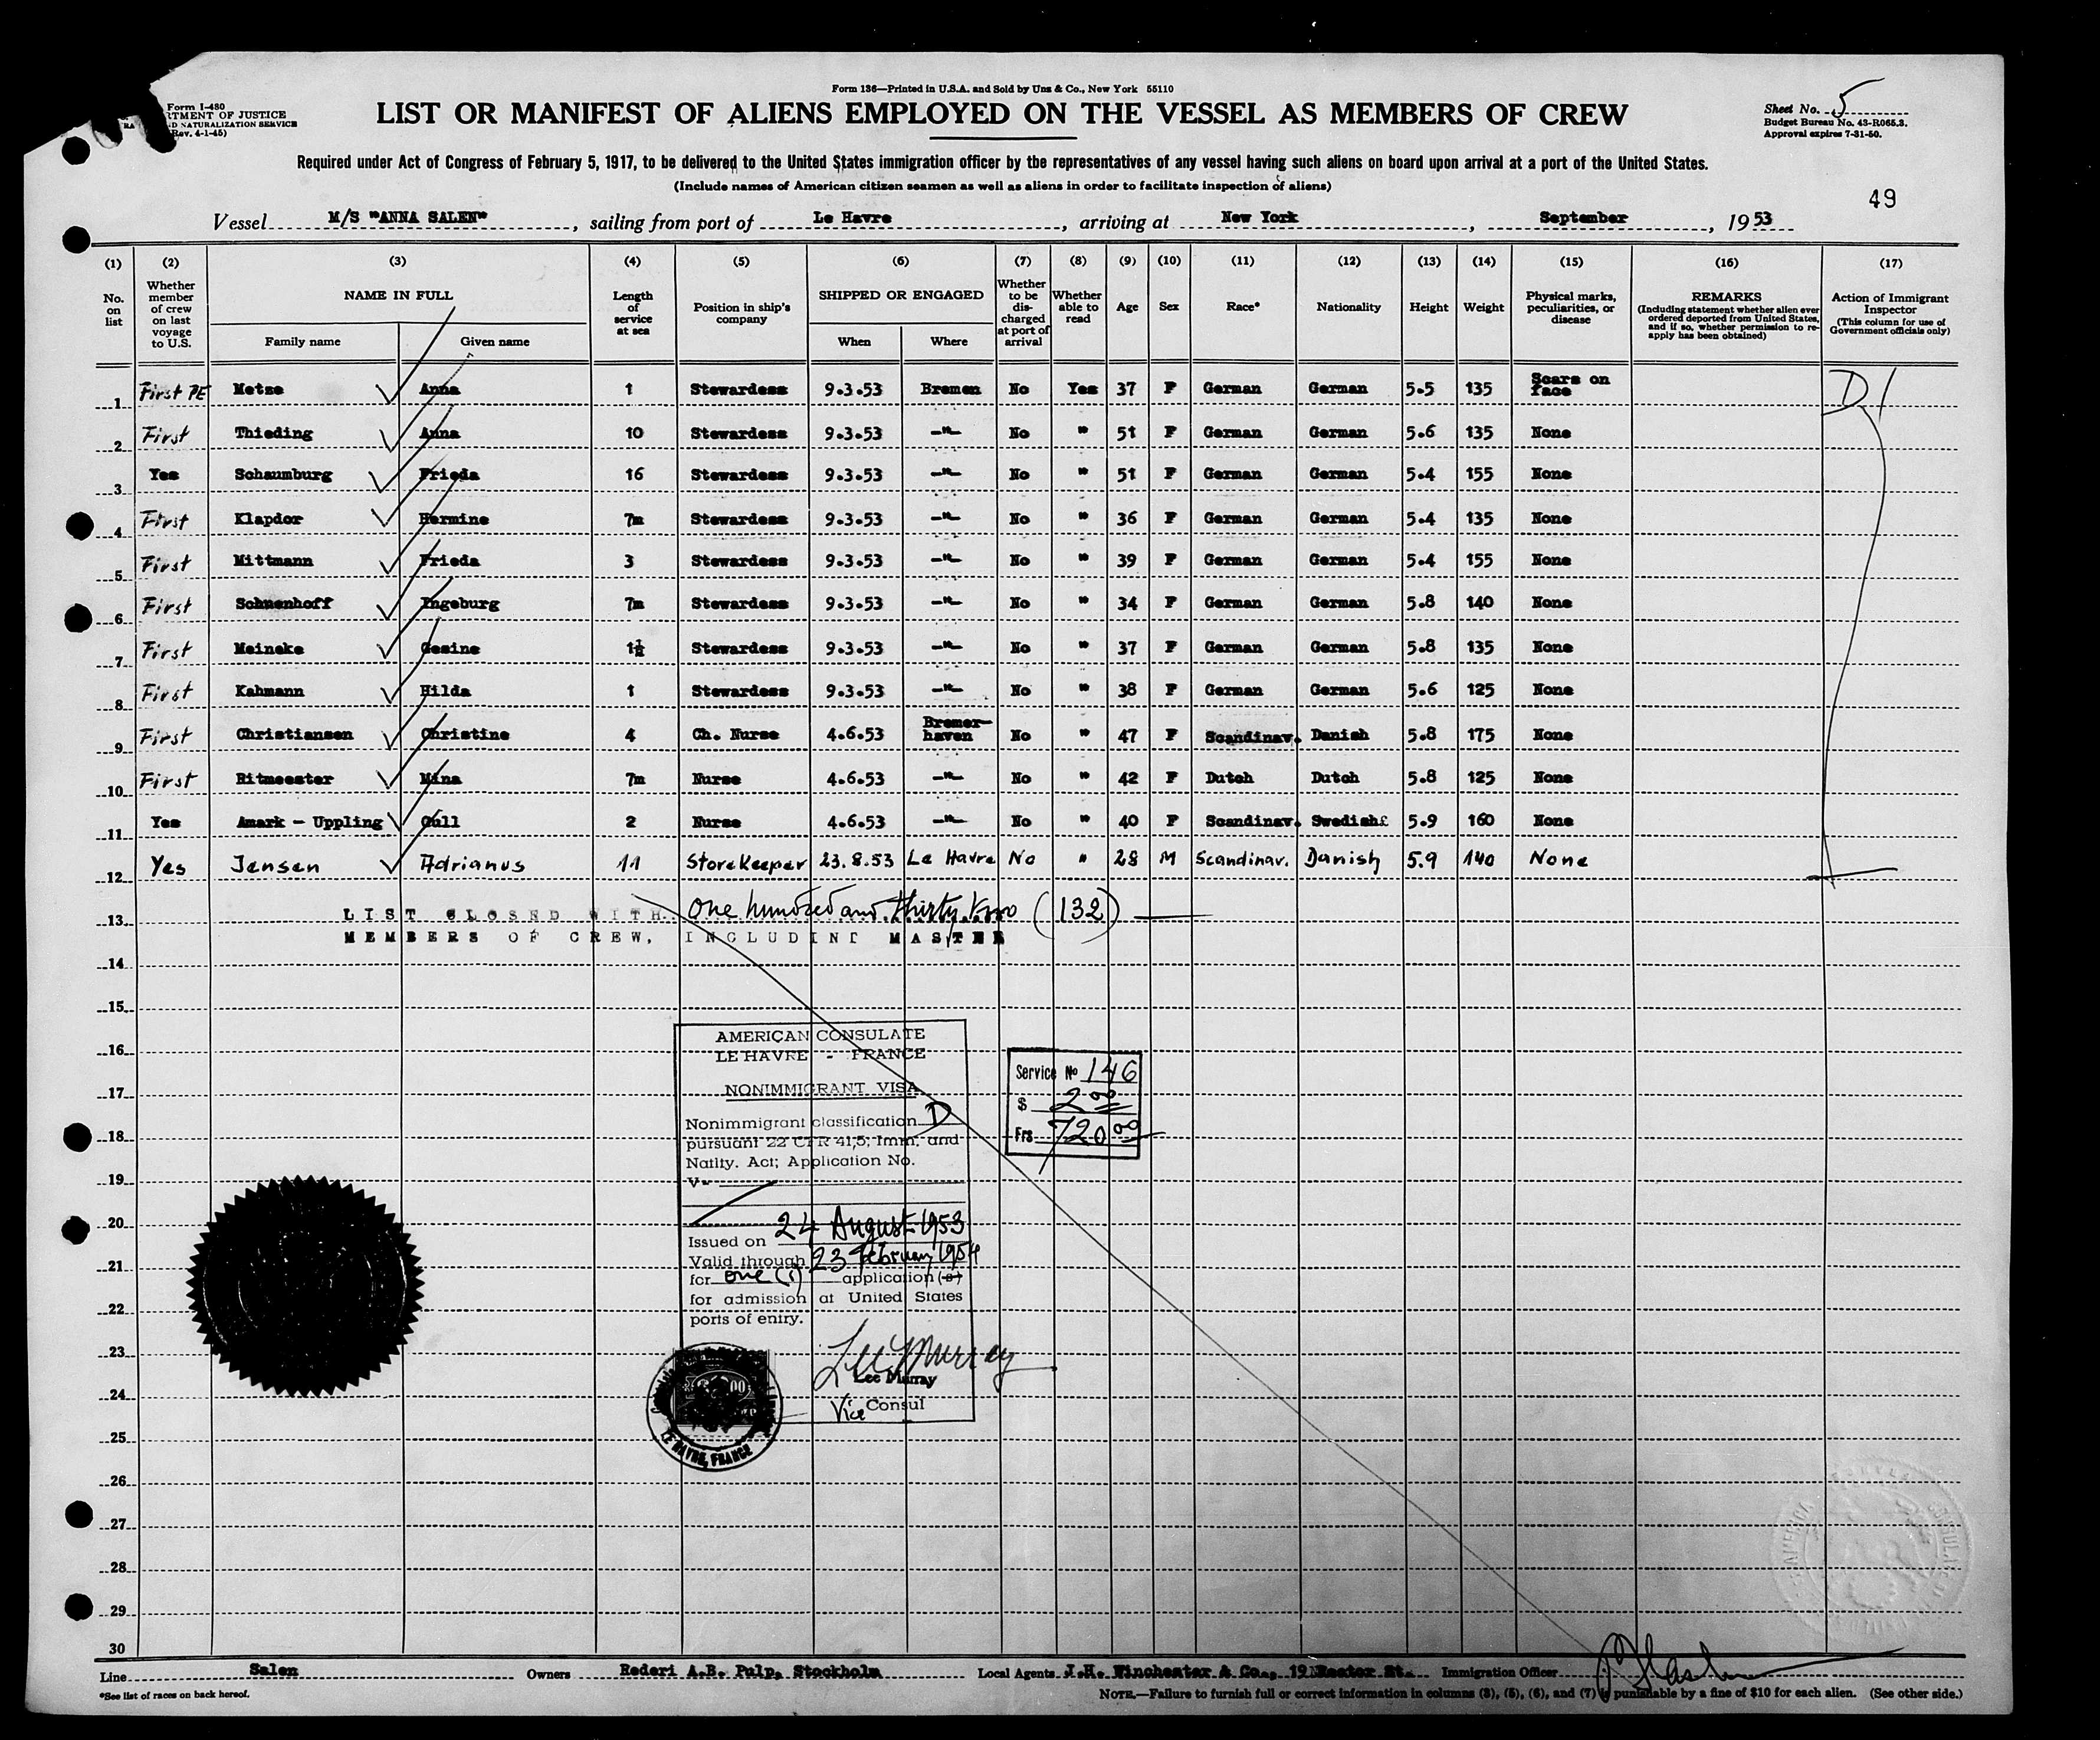 Form 136—Printed in U.S.A. and Sold by Unz & Co., New York 55110
Form I-480
RTMENT OF JUSTICE
D NATURALIZATION SERVICE
Rev. 4-1-45)
LIST OR MANIFEST OF ALIENS EMPLOYED ON THE VESSEL AS MEMBERS OF CREW
Sheet No. 5
Budget Bureau No. 43-R065.3.
Approval expires 7-31-50.
Required under Act of Congress of February 5, 1917, to be delivered to the United States immigration officer by the representatives of any vessel having such aliens on board upon arrival at a port of the United States.
(Include names of American citizen seamen as well as aliens in order to facilitate inspection of aliens)
49
Vessel M/S "ANNA SALEN", sailing from port of Le Havre, arriving at New York, September, 1953
(1) (2) (3) (4) (5) (6) (7) (8) (9) (10) (11) (12) (13) (14) (15) (16) (17)
No. on list
Whether member of crew on last voyage to U.S.
NAME IN FULL
Family name
Given name
Length of service at sea
Position in ship's company
SHIPPED OR ENGAGED
When
Where
Whether to be discharged at port of arrival
Whether able to read
Age
Sex
Race*
Nationality
Height
Weight
Physical marks, peculiarities, or disease
REMARKS
(Including statement whether alien ever ordered deported from United States, and if so, whether permission to re-apply has been obtained)
Action of Immigrant Inspector
(This column for use of Government officials only)
1 First PE Metze Anna 1 Stewardess 9.3.53 Bremen No Yes 37 F German German 5.5 135 Scars on face D1
2 First Thieding Anna 10 Stewardess 9.3.53 -"- No " 51 F German German 5.6 135 None
3 Yes Schaumburg Frieda 16 Stewardess 9.3.53 -"- No " 51 F German German 5.4 155 None
4 First Klapdor Hermine 7m Stewardess 9.3.53 -"- No " 36 F German German 5.4 135 None
5 First Mittmann Frieda 3 Stewardess 9.3.53 -"- No " 39 F German German 5.4 155 None
6 First Schuenhoff Ingeburg 7m Stewardess 9.3.53 -"- No " 34 F German German 5.8 140 None
7 First Meineke Gesine 1½ Stewardess 9.3.53 -"- No " 37 F German German 5.8 135 None
8 First Kahmann Hilda 1 Stewardess 9.3.53 -"- No " 38 F German German 5.6 125 None
9 First Christiansen Christine 4 Ch. Nurse 4.6.53 Bremerhaven No " 47 F Scandinav. Danish 5.8 175 None
10 First Ritmeester Mina 7m Nurse 4.6.53 -"- No " 42 F Dutch Dutch 5.8 125 None
11 Yes Amark - Uppling Gull 2 Nurse 4.6.53 -"- No " 40 F Scandinav. Swedish£ 5.9 160 None
12 Yes Jensen Adrianus 11 Storekeeper 23.8.53 Le Havre No " 28 M Scandinav. Danish 5.9 140 None
13 LIST CLOSED WITH one hundred and thirty two (132)
MEMBERS OF CREW, INCLUDINT MASTER
14
15
16
17
18
19
20
21
22
23
24
25
26
27
28
29
30
AMERICAN CONSULATE
LE HAVRE - FRANCE
NONIMMIGRANT VISA
Nonimmigrant classification D
pursuant 22 CFR 41,5; Imm. and
Natlty. Act; Application No.
V-
Issued on 24 August 1953
Valid through 23 February 1954
for one (1) application (s)
for admission at United States
ports of entry.
Lee Murray
Lee Murray
Vice Consul
Service No 146
$ 2.00
Frs 720.00
LE HAVRE, FRANCE
Line Salen Owners Rederi A.B. Pulp, Stockholm Local Agents J.H. Winchester & Co., 19 Rector St. Immigration Officer
*See list of races on back hereof.
NOTE.—Failure to furnish full or correct information in columns (3), (5), (6), and (7) is punishable by a fine of $10 for each alien. (See other side.)